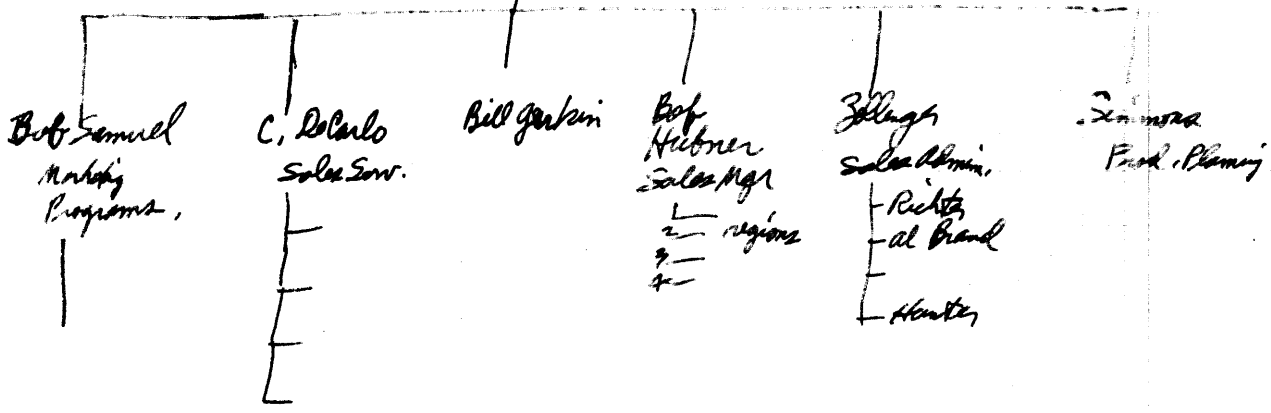 Bob Samuel
Marketing
Programs,
C. DeCarlo
Sales Serv.
Bill
Bob
Hubner
Sales Mgr
1
2 regions
3
4
Zollinger
Sales Admin.
Richter
Al Brand
Hunter
Simmons
Prod. Planning